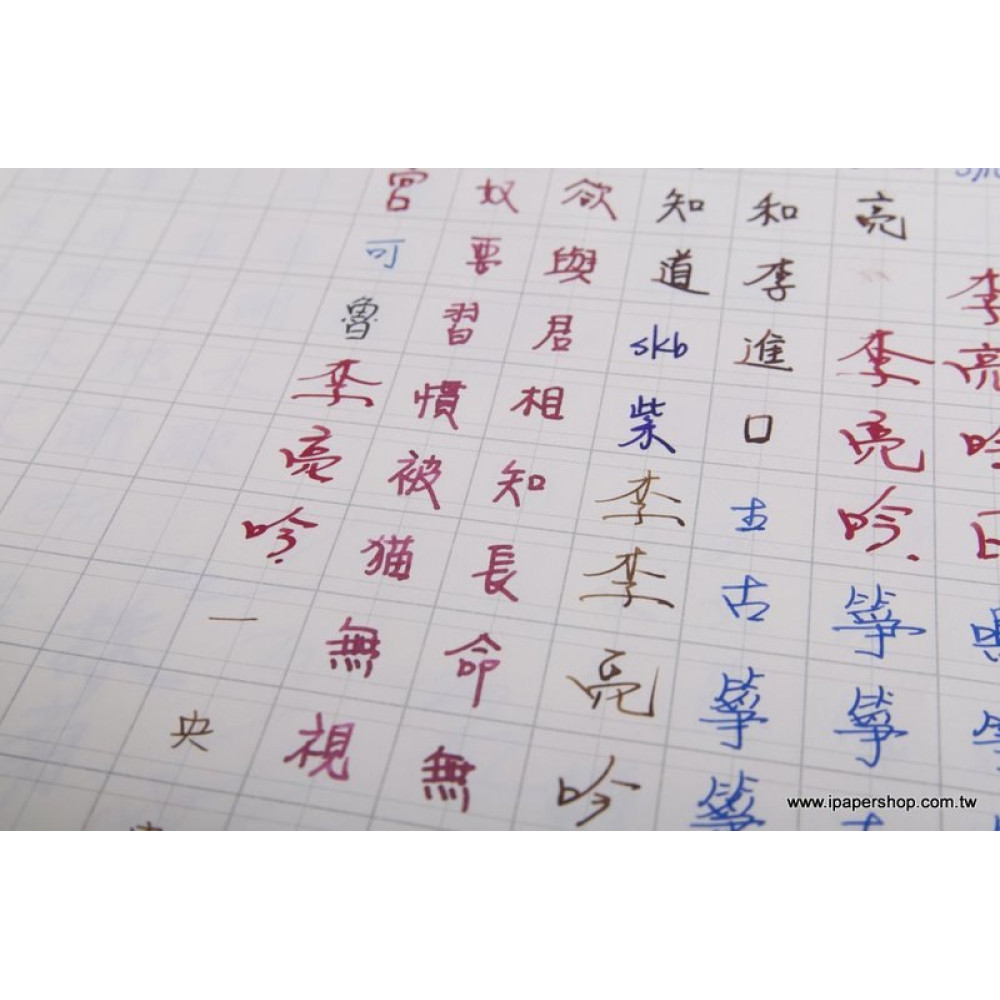 李亮吟日
亮李亮吟.箏箏
和李進口古箏箏
知道skb紫李李亮吟
欲與君相知長命無
奴要習慣被猫無視
宮可魯李亮吟一央
www.ipapershop.com.tw